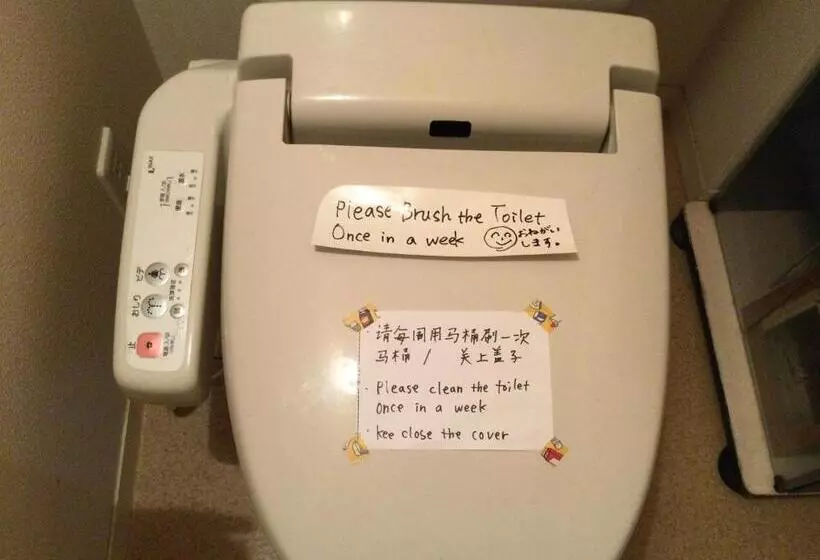 Please Brush the Toilet
Once in a week おねがい
します。
・请每周用马桶刷一次
马桶 / 关上盖子
・Please clean the toilet
Once in a week
・kee close the cover
ビデ
おしり
止